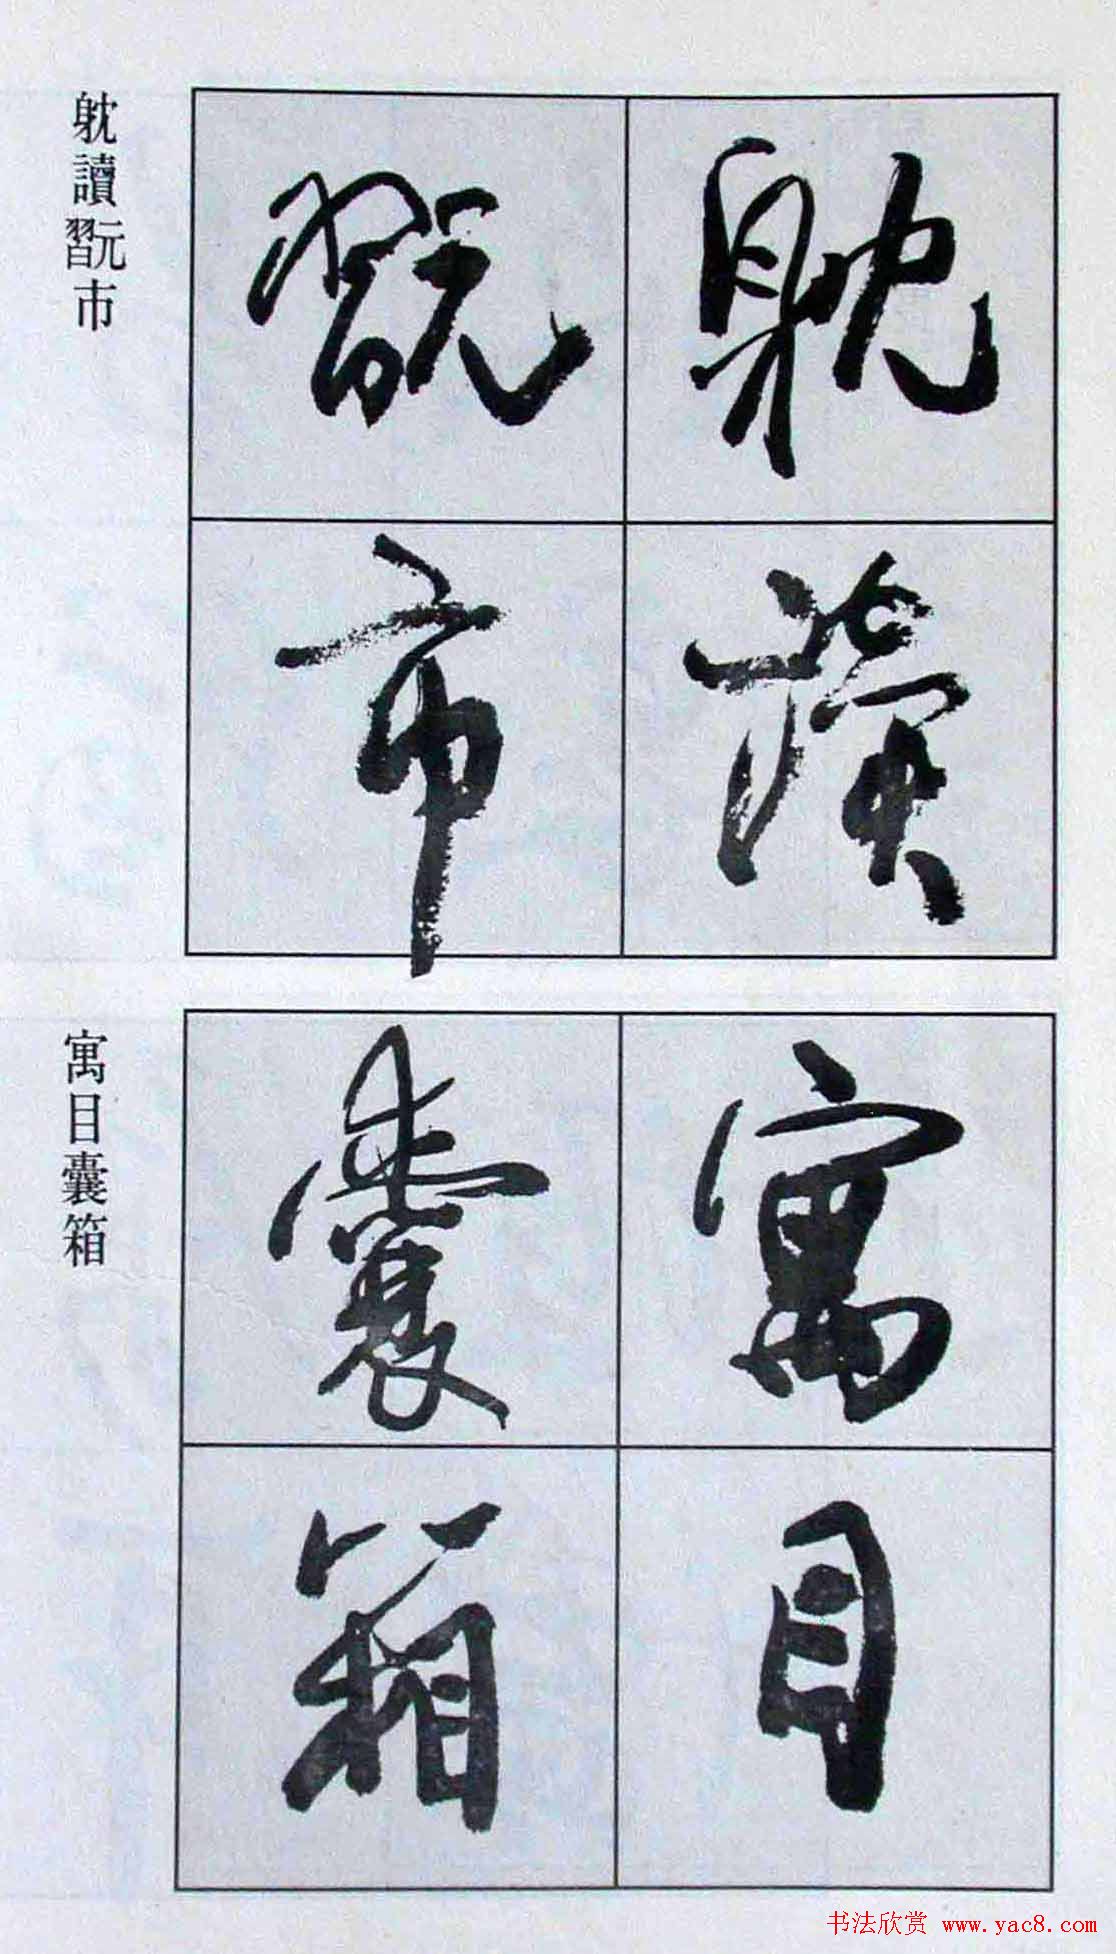 躭讀翫市
寓目囊箱
躭讀
翫市
寓目
囊箱
书法欣赏 www.yac8.com